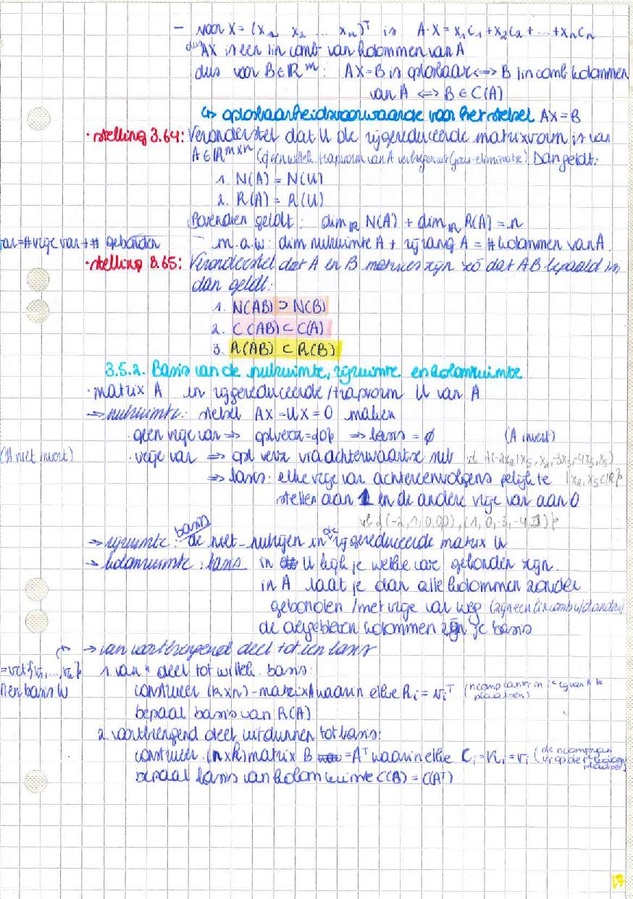 - voor X = (x1 x2 ... xn)^T is A·X = x1C1 + x2C2 + ... + xnCn
dus AX is een lin comb van kolommen van A
dus voor B∈ℝ^m: AX=B is oplosbaar <=> B lin comb kolommen
van A <=> B ∈ C(A)
↳ oplosbaarheidsvoorwaarde voor het stelsel AX=B
· stelling 3.64: Veronderstel dat U de rijgereduceerde matrixvorm is van
A∈ℝ^m×n Dan geldt:
1. N(A) = N(U)
2. R(A) = R(U)
Bovendien geldt: dim_ℝ N(A) + dim_ℝ R(A) = n
var = # vrije var + # gebonden
m.a.w: dim nulruimte A + rijrang A = # kolommen van A
· stelling 3.65: Veronderstel dat A en B matrices zijn zó dat AB bepaald is,
dan geldt:
1. N(AB) ⊃ N(B)
2. C(AB) ⊂ C(A)
3. R(AB) ⊂ R(B)
3.5.2. Basis van de nulruimte, rijruimte en kolomruimte
· matrix A in rijgereduceerde/trapvorm U van A
→ nulruimte: stelsel AX=UX=0 maken
· geen vrije var => oplverz = {0} => basis = ∅ (A invert)
(A niet invert) · vrije var => opl verz via achterwaartse
=> basis: elke vrije var achtereenvolgens gelijk te
stellen aan 1 en de andere vrije var aan 0
→ rijruimte: basis de niet-nulrijen in de rijgereduceerde matrix U
→ kolomruimte: basis in U kijk je welke var gebonden zijn.
in A laat je dan alle kolommen zonder
gebonden/met vrije var weg (zijn een lin comb v/d andere)
de overgebleven kolommen zijn je basis
→ van voortbrengend deel tot een basis
1. van deel tot willek. basis:
construeer (k×n)-matrix A waarin elke Ri = vi^T
bepaal basis van R(A)
2. voortbrengend deel uitdunnen tot basis:
construeer (n×k) matrix B = A^T waarin elke Ci = vi
bepaal basis van kolomruimte C(B) = C(A^T)
17